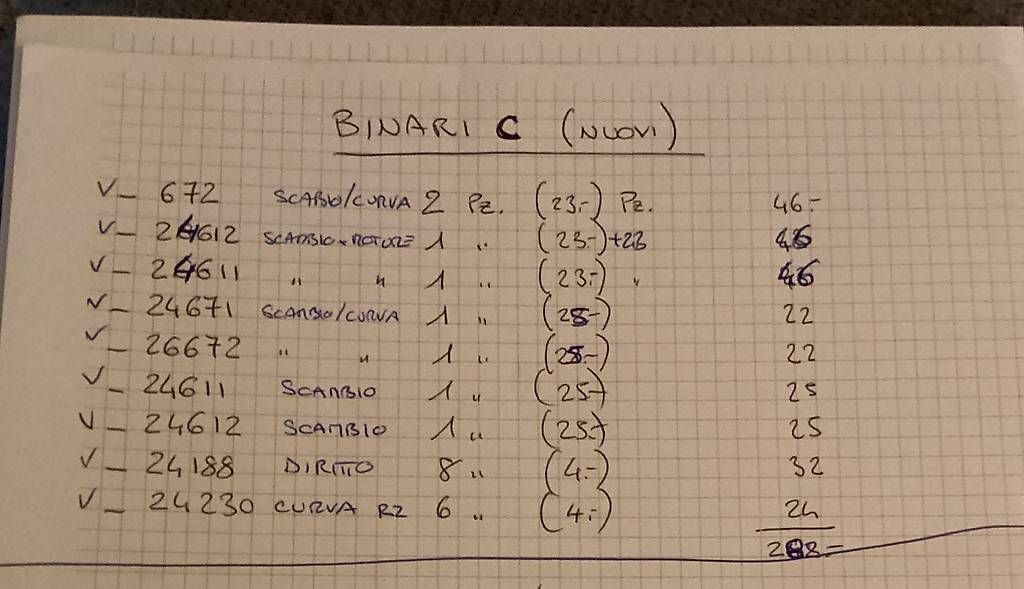 BINARI C (NUOVI)
V_ 672 SCABIO/CURVA 2 Pz. (23.-) Pz. 46.-
V_ 24612 SCAMBIO+MOTORE 1 " (23.-)+23 46
V_ 24611 " " 1 " (23.-) " 46
V_ 24671 SCAMBIO/CURVA 1 " 22
V_ 26672 " " 1 " 22
V_ 24611 SCAMBIO 1 " (25.-) 25
V_ 24612 SCAMBIO 1 " (25.-) 25
V_ 24188 DIRITTO 8 " (4.-) 32
V_ 24230 CURVA R2 6 " (4.-) 24
288=